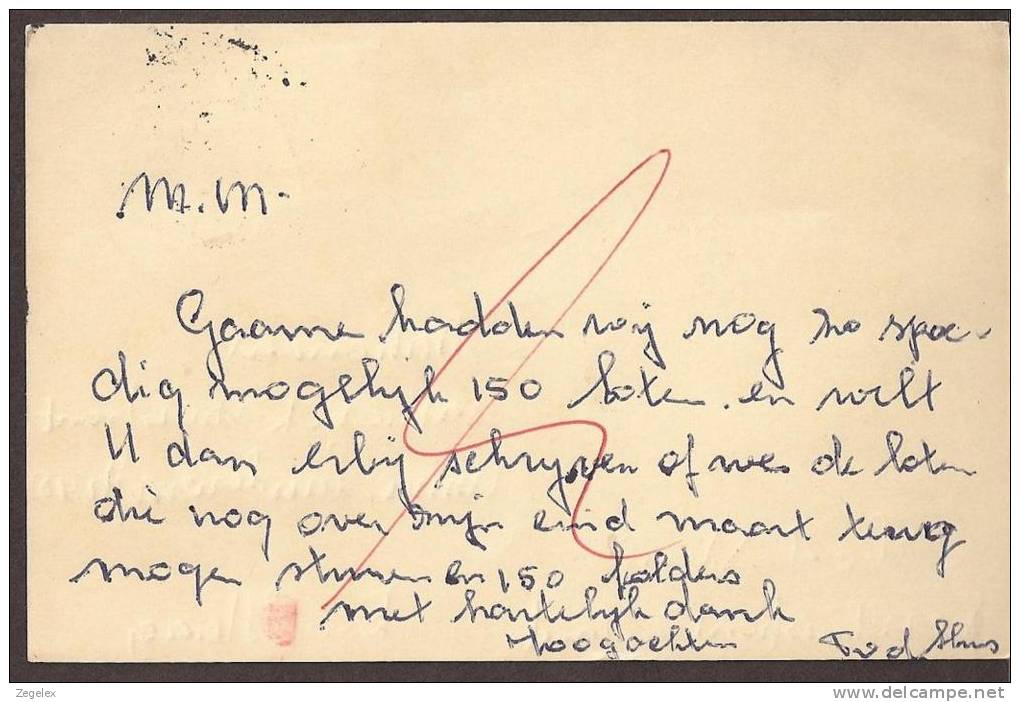 M.M.
Gaarne hadden wij nog zo spoe-
dig mogelijk 150 loten. en wilt
U dan erbij schrijven of we de loten
die nog over zijn eind maart terug
mogen sturen en 150 folders
met hartelijk dank
Hoogachten
Zegelex
www.delcampe.net